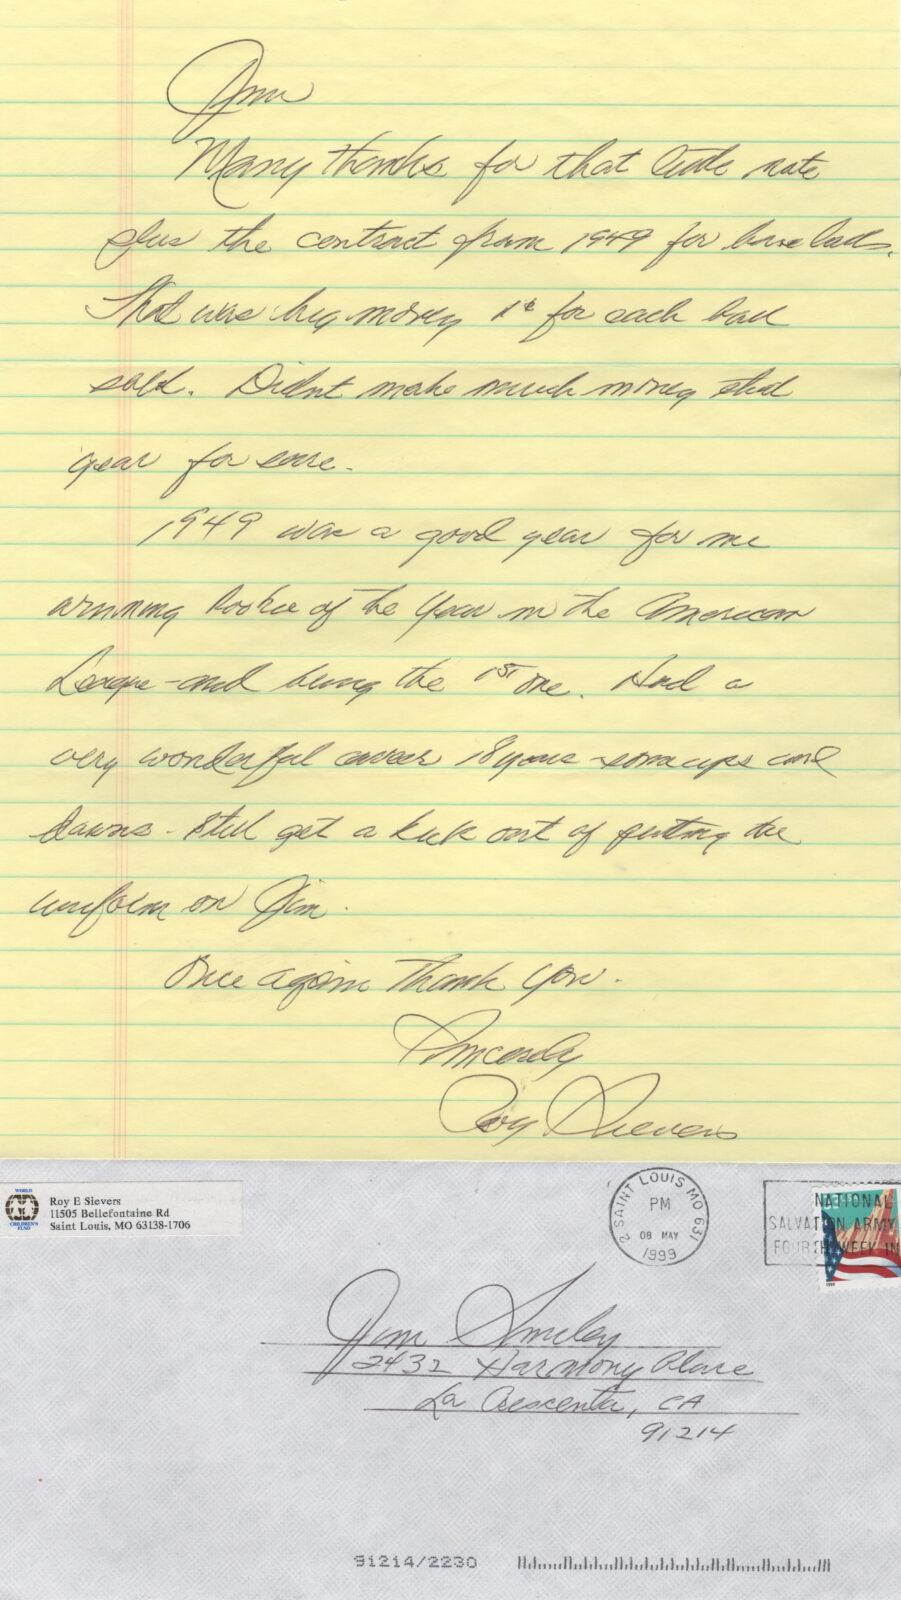 Jim
Many thanks for that little note
plus the contract from 1949 for baseballs.
That was big money 1¢ for each ball
sold. Didnt make much money that
year for sure.
1949 was a good year for me
winning Rookie of the Year in the American
League - and being the 1st one. Had a
very wonderful career 18 years - some ups and
downs - Still get a kick out of putting the
uniform on Jim.
Once again Thank You.
Sincerely
Roy Sievers
WORLD
CHILDREN'S
FUND
Roy E Sievers
11505 Bellefontaine Rd
Saint Louis, MO 63138-1706
2 SAINT LOUIS MO 631
PM
08 MAY
1999
NATIONAL
SALVATION ARMY
FOURTH WEEK IN
1998
Jim Smiley
2432 Harmony Place
La Crescenta, CA
91214
91214/2230